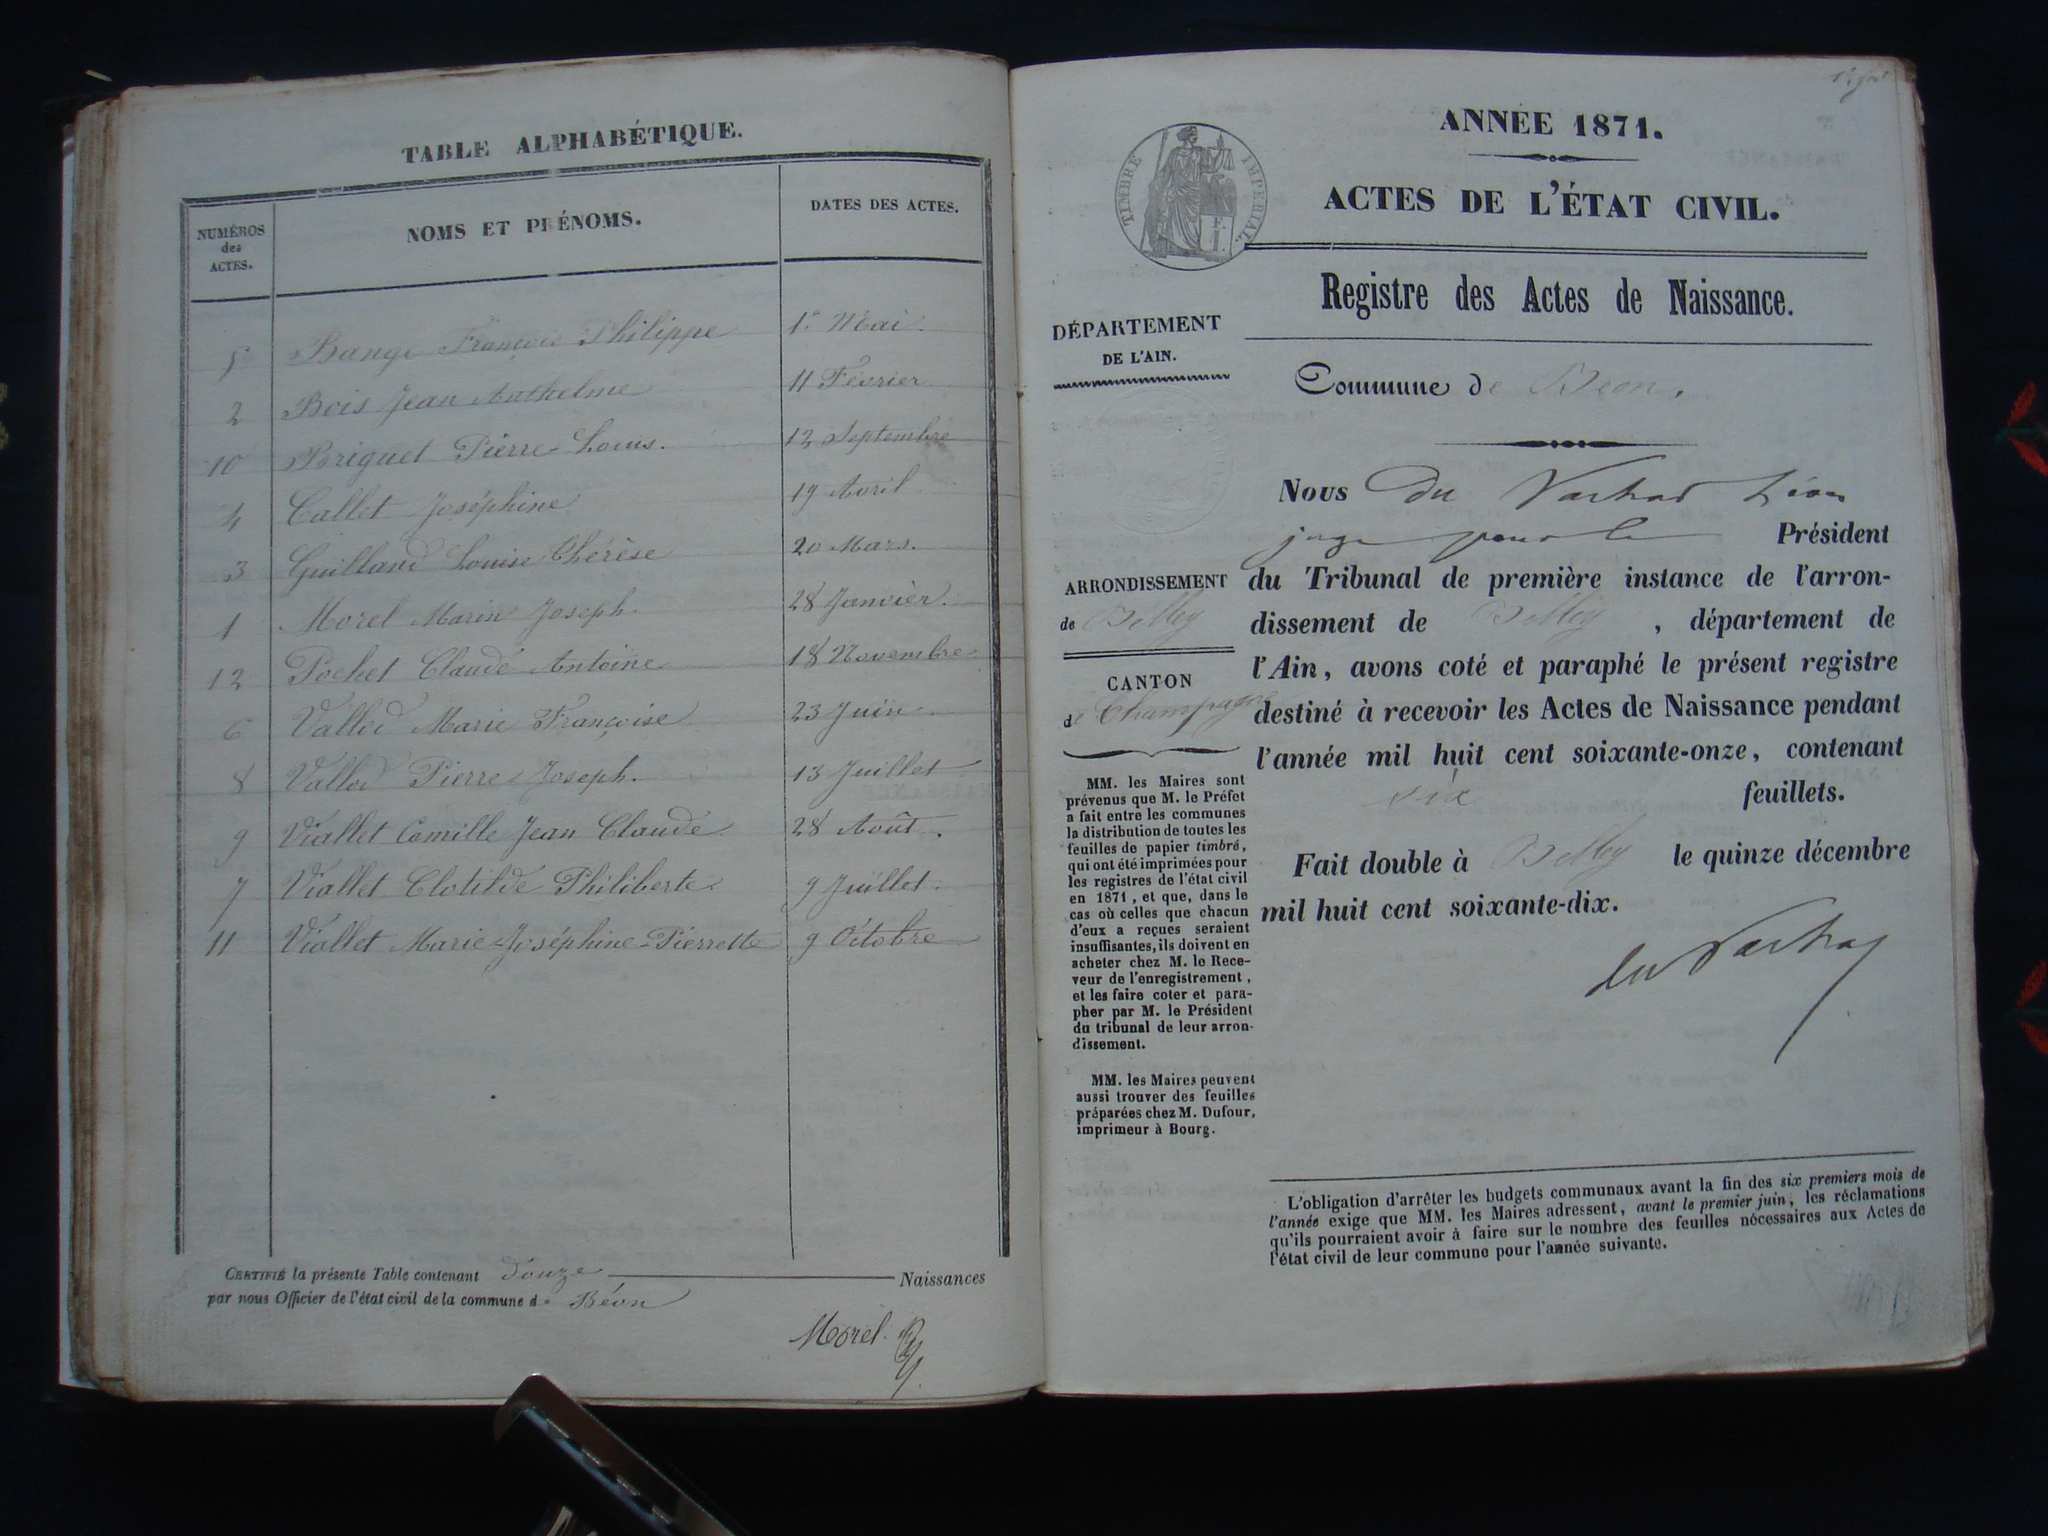 TABLE ALPHABÉTIQUE.
NUMÉROS des ACTES.
NOMS ET PRÉNOMS.
DATES DES ACTES.
5 Bange François Philippe 1er Mai.
2 Bois Jean Anthelme 11 Février
10 Briguet Pierre-Louis. 12 Septembre
4 Callet Joséphine 19 Avril
3 Guilland Louise Thérèse 20 Mars.
1 Morel Marin Joseph. 28 Janvièr.
12 Pochet Claude Antoine 18 Novembre
6 Vallod Marie Françoise 23 Juin
8 Vallod Pierre-Joseph. 13 Juillet
9 Viallet Camille Jean Claude 28 Août.
7 Viallet Clotilde Philiberte. 9 Juillet.
11 Viallet Marie-Joséphine-Pierrette 9 Octobre
CERTIFIÉ la présente Table contenant Douze Naissances
par nous Officier de l'état civil de la commune de Béon
Morel
ANNÉE 1871.
TIMBRE IMPÉRIAL.
ACTES DE L'ÉTAT CIVIL.
Registre des Actes de Naissance.
DÉPARTEMENT
DE L'AIN.
Commune de Béon.
ARRONDISSEMENT
de Belley
CANTON
de Champagne
MM. les Maires sont
prévenus que M. le Préfet
a fait entre les communes
la distribution de toutes les
feuilles de papier timbré,
qui ont été imprimées pour
les registres de l'état civil
en 1871, et que, dans le
cas où celles que chacun
d'eux a reçues seraient
insuffisantes, ils doivent en
acheter chez M. le Rece-
veur de l'enregistrement,
et les faire coter et para-
pher par M. le Président
du tribunal de leur arron-
dissement.
MM. les Maires peuvent
aussi trouver des feuilles
préparées chez M. Dufour,
imprimeur à Bourg.
Nous du Léon
juge pour le Président
du Tribunal de première instance de l'arron-
dissement de Belley, département de
l'Ain, avons coté et paraphé le présent registre
destiné à recevoir les Actes de Naissance pendant
l'année mil huit cent soixante-onze, contenant
six feuillets.
Fait double à Belley le quinze décembre
mil huit cent soixante-dix.
L'obligation d'arrêter les budgets communaux avant la fin des six premiers mois de
l'année exige que MM. les Maires adressent, avant le premier juin, les réclamations
qu'ils pourraient avoir à faire sur le nombre des feuilles nécessaires aux Actes de
l'état civil de leur commune pour l'année suivante.